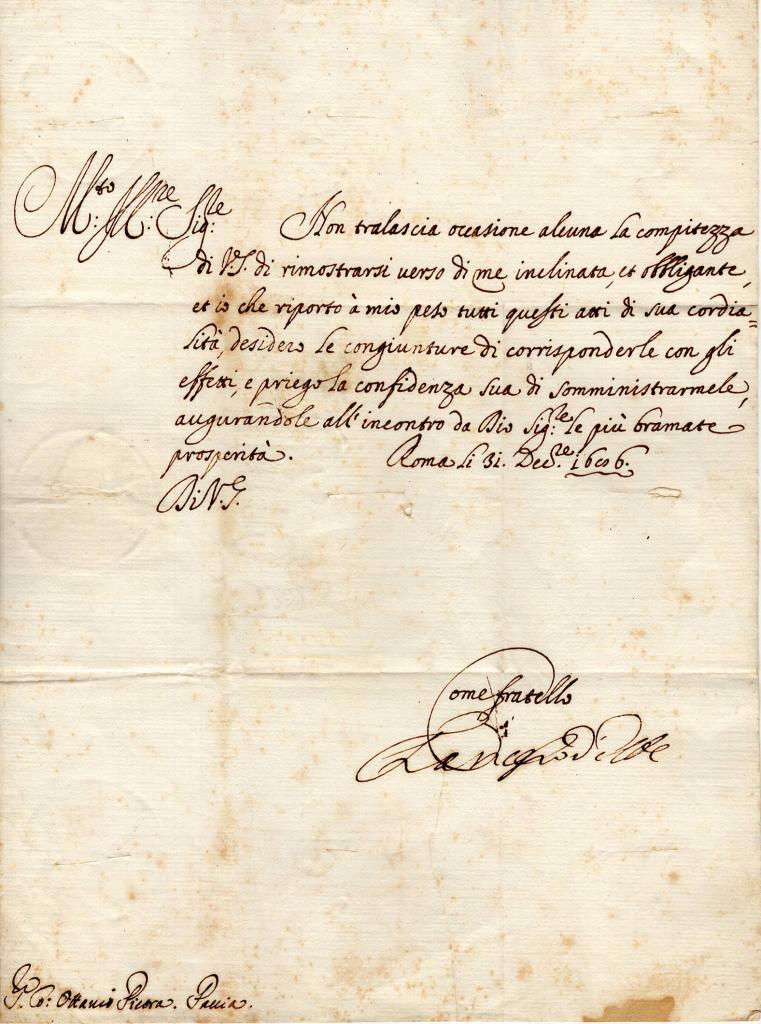 M:to Ill:re Sig:re Non tralascia occasione alcuna la compitezza
di V.S. di rimostrarsi verso di me inclinata, et obbligante,
et io che riporto à mio peso tutti questi atti di sua cordia=
lità, desidero le congiunture di corrisponderle con gli
effetti, e priego la confidenza sua di somministrarmele,
augurandole all'incontro da Dio Sig:re le più bramate
prosperità. Roma li 31. Dec:re
Di V.S.
Come fratello
S. Co: Ottavio Pavia.